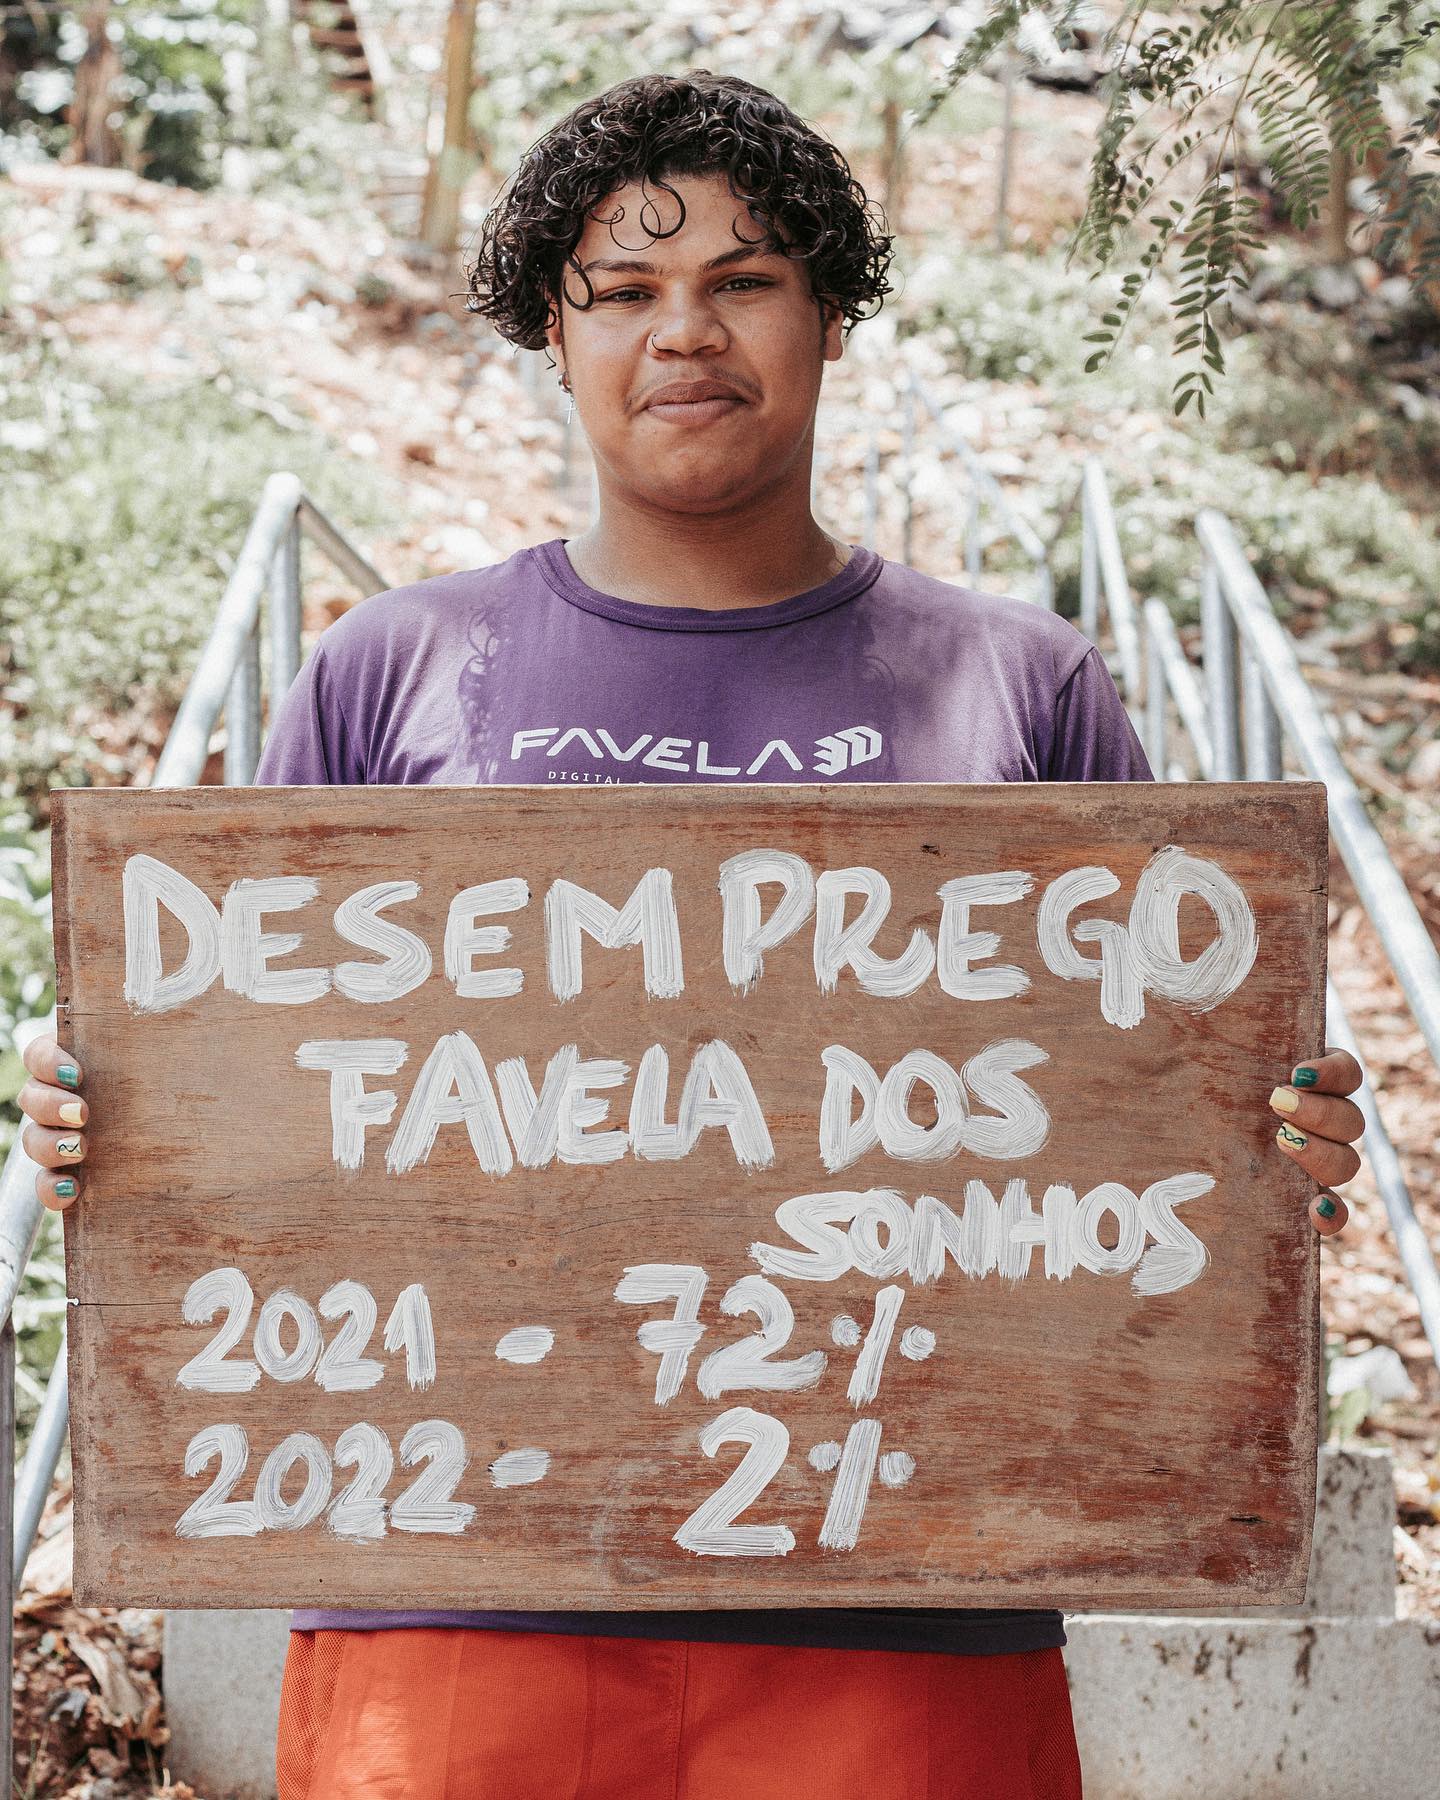 FAVELA 3D
DIGITAL
DESEMPREGO
FAVELA DOS
SONHOS
2021 - 72%
2022 - 2%